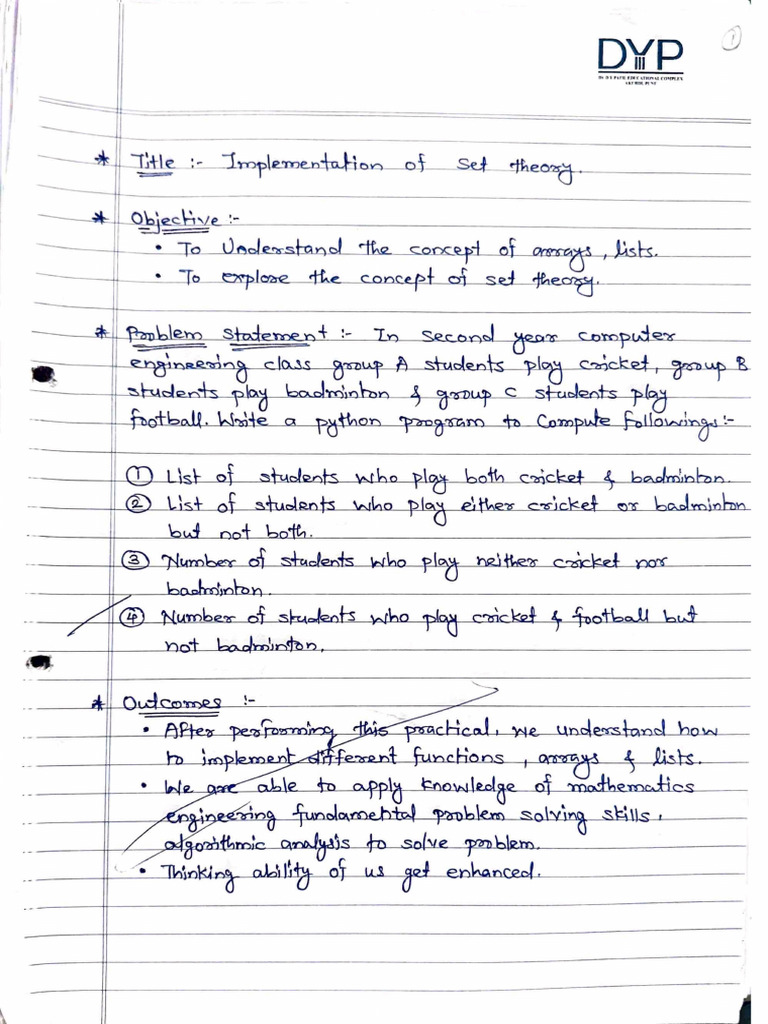 1
DYP
DR. D Y PATIL EDUCATIONAL COMPLEX
AKURDI, PUNE
* Title :- Implementation of set theory.
* Objective :-
• To Understand the concept of arrays, lists.
• To explore the concept of set theory.
* Problem statement :- In second year computer
engineering class group A students play cricket, group B
students play badminton & group C students play
football. Write a python program to compute followings:-
① List of students who play both cricket & badminton.
② List of students who play either cricket or badminton
but not both.
③ Number of students who play neither cricket nor
badminton.
④ Number of students who play cricket & football but
not badminton.
* Outcomes :-
• After performing this practical, we understand how
to implement different functions, arrays & lists.
• We are able to apply knowledge of mathematics
engineering fundamental problem solving skills,
algorithmic analysis to solve problem.
• Thinking ability of us get enhanced.